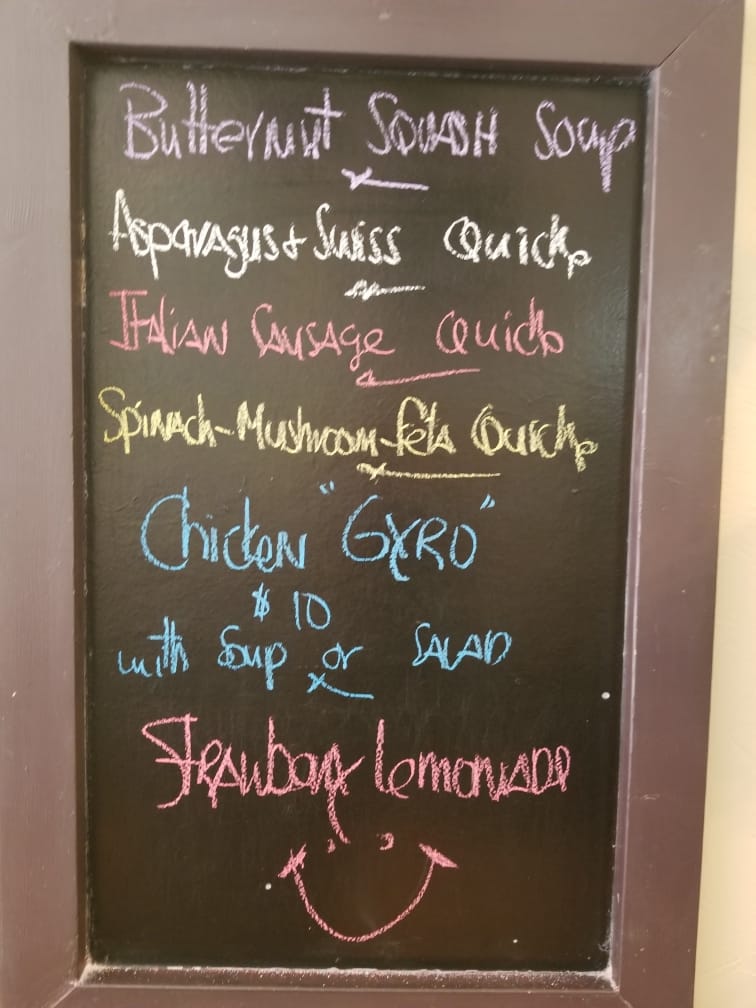 Butternut Squash Soup
Asparagus + Swiss Quiche
Italian Sausage Quiche
Spinach-Mushroom-Feta Quiche
Chicken "GYRO"
$10
with Soup or SALAD
Strawberry Lemonade